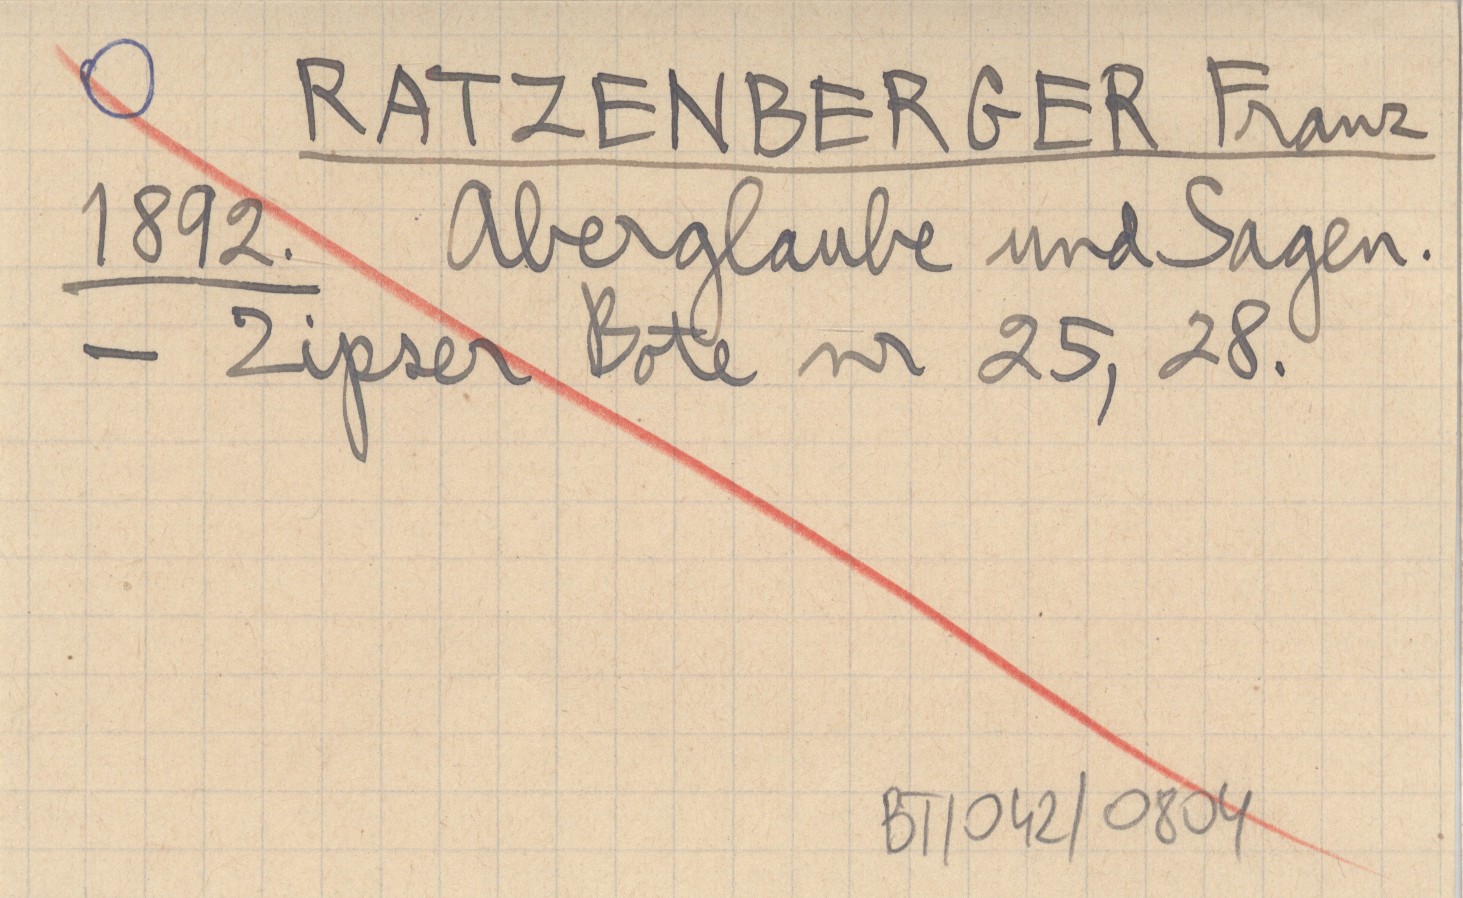 RATZENBERGER Franz
1892. Aberglaube und Sagen.
— Zipser Bote nr 25, 28.
BT/042/0804